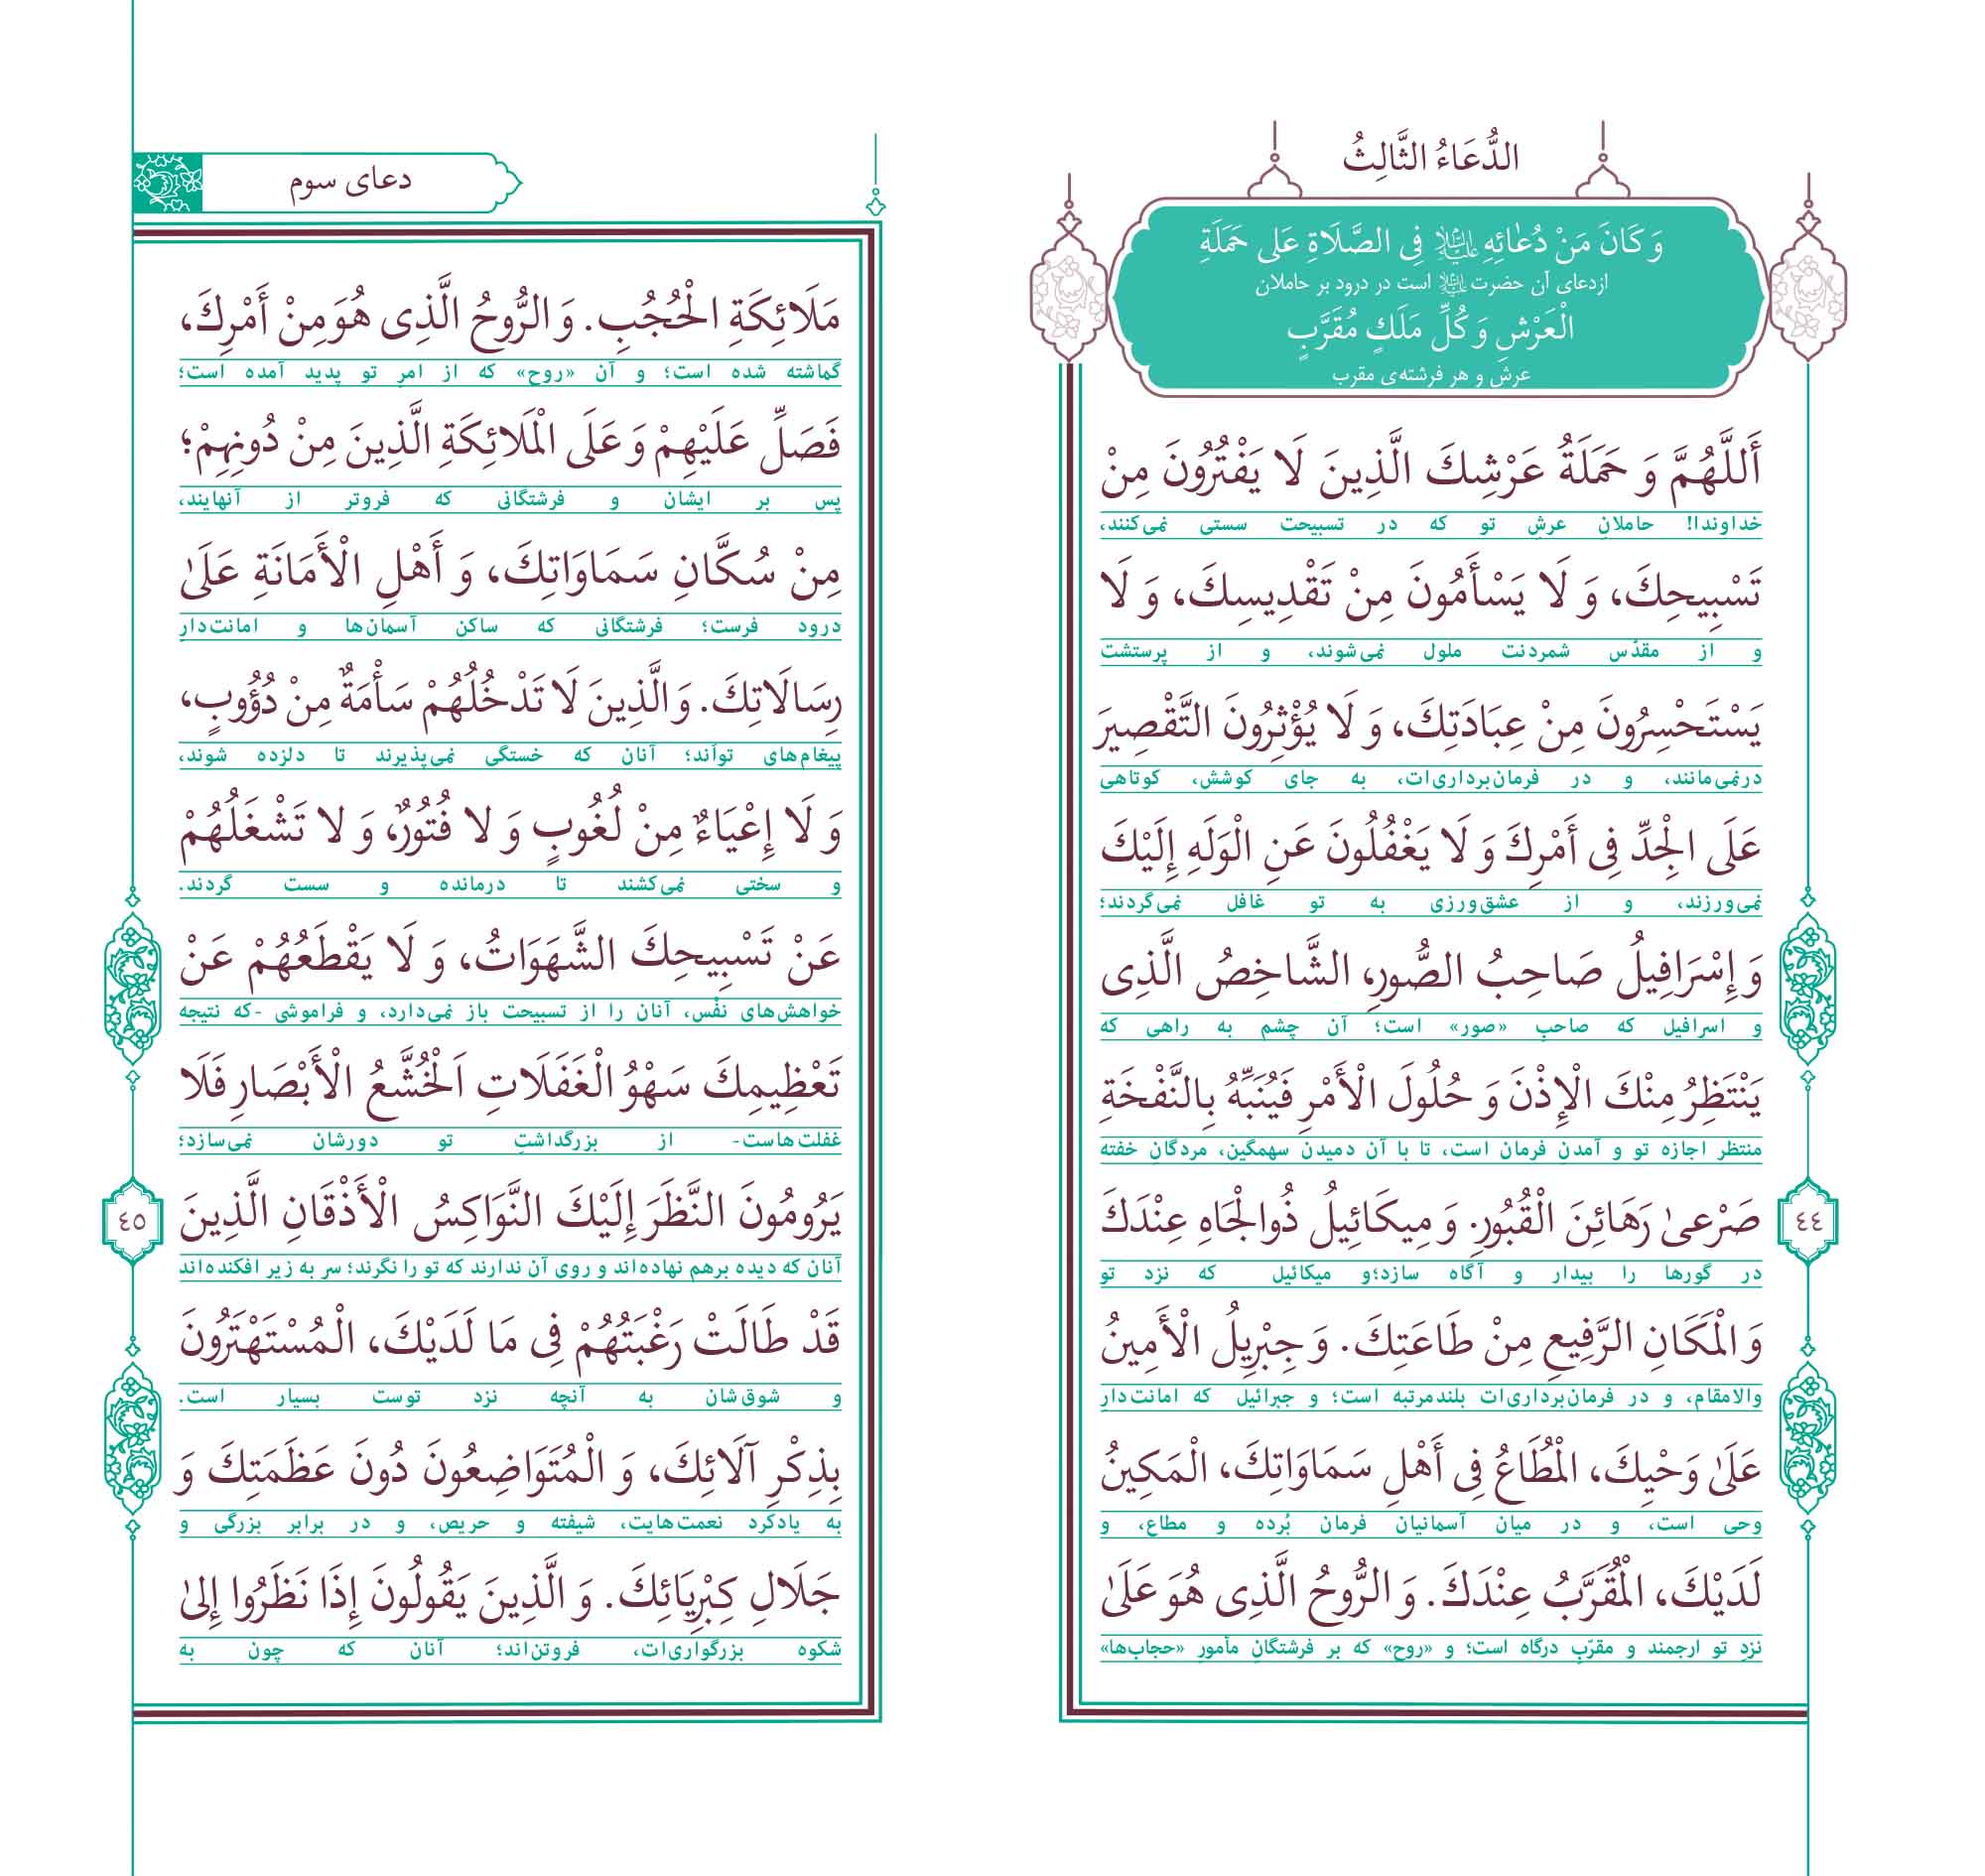 الدُّعَاءُ الثَّالِثُ
وَ كَانَ مَنْ دُعَائِهِ عَلَيْهِ‌السَّلَامُ فِی الصَّلَاةِ عَلَی حَمَلَةِ
ازدعای آن حضرت علیه‌السلام است در درود بر حاملان
الْعَرْشِ وَ كُلِّ مَلَكٍ مُقَرَّبٍ
عرش و هر فرشته‌ی مقرب
أَللَّهُمَّ وَ حَمَلَةُ عَرْشِكَ الَّذِينَ لَا يَفْتُرُونَ مِنْ
خداوندا! حاملانِ عرشِ تو که در تسبیحت سستی نمی‌کنند،
تَسْبِيحِكَ، وَ لَا يَسْأَمُونَ مِنْ تَقْدِيسِكَ، وَ لَا
و از مقدّس شمردنت ملول نمی‌شوند، و از پرستشت
يَسْتَحْسِرُونَ مِنْ عِبَادَتِكَ، وَ لَا يُؤْثِرُونَ التَّقْصِيرَ
درنمی‌مانند، و در فرمان‌برداری‌ات، به جای کوشش، کوتاهی
عَلَی الْجِدِّ فِی أَمْرِكَ وَ لَا يَغْفُلُونَ عَنِ الْوَلَهِ إِلَيْكَ
نمی‌ورزند، و از عشق‌ورزی به تو غافل نمی‌گردند؛
وَ إِسْرَافِيلُ صَاحِبُ الصُّورِ، الشَّاخِصُ الَّذِی
و اسرافیل که صاحبِ «صور» است؛ آن چشم به راهی که
يَنْتَظِرُ مِنْكَ الْإِذْنَ وَ حُلُولَ الْأَمْرِ فَيُنَبِّهُ بِالنَّفْخَةِ
منتظر اجازه تو و آمدنِ فرمان است، تا با آن دمیدنِ سهمگین، مردگانِ خفته
صَرْعیٰ رَهَائِنَ الْقُبُورِ. وَ مِيكَائِيلُ ذُوالْجَاهِ عِنْدَكَ
در گورها را بیدار و آگاه سازد؛و میکائیل که نزد تو
وَ الْمَكَانِ الرَّفِيعِ مِنْ طَاعَتِكَ. وَ جِبْرِيلُ الْأَمِينُ
والامقام، و در فرمان‌برداری‌ات بلندمرتبه است؛ و جبرائیل که امانت‌دار
عَلَىٰ وَحْيِكَ، الْمُطَاعُ فِی أَهْلِ سَمَاوَاتِكَ، الْمَكِينُ
وحی است، و در میان آسمانیان فرمان بُرده و مطاع، و
لَدَيْكَ، الْمُقَرَّبُ عِنْدَكَ. وَ الرُّوحُ الَّذِی هُوَ عَلَىٰ
نزدِ تو ارجمند و مقرّبِ درگاه است؛ و «روح» که بر فرشتگانِ مأمورِ «حجاب‌ها»
٤٤
دعای سوم
مَلَائِكَةِ الْحُجُبِ. وَ الرُّوحُ الَّذِی هُوَمِنْ أَمْرِكَ،
گماشته شده است؛ و آن «روح» که از امرِ تو پدید آمده است؛
فَصَلِّ عَلَيْهِمْ وَ عَلَی الْمَلَائِكَةِ الَّذِينَ مِنْ دُونِهِمْ؛
پس بر ایشان و فرشتگانی که فروتر از آنهایند،
مِنْ سُكَّانِ سَمَاوَاتِكَ، وَ أَهْلِ الْأَمَانَةِ عَلَىٰ
درود فرست؛ فرشتگانی که ساکن آسمان‌ها و امانت‌دارِ
رِسَالَاتِكَ. وَ الَّذِينَ لَا تَدْخُلُهُمْ سَأْمَةٌ مِنْ دُؤُوبٍ،
پیغام‌های تواَند؛ آنان که خستگی نمی‌پذیرند تا دلزده شوند،
وَ لَا إِعْيَاءٌ مِنْ لُغُوبٍ وَ لا فُتُورٌ، وَ لا تَشْغَلُهُمْ
و سختی نمی‌کشند تا درمانده و سست گردند.
عَنْ تَسْبِيحِكَ الشَّهَوَاتُ، وَ لَا يَقْطَعُهُمْ عَنْ
خواهش‌های نفْس، آنان را از تسبیحت باز نمی‌دارد، و فراموشی -که نتیجه
تَعْظِيمِكَ سَهْوُ الْغَفَلَاتِ اَلْخُشَّعُ الْأَبْصَارِ فَلَا
غفلت‌هاست- از بزرگداشتِ تو دورشان نمی‌سازد؛
يَرُومُونَ النَّظَرَ إِلَيْكَ النَّوَاكِسُ الْأَذْقَانِ الَّذِينَ
آنان که دیده برهم نهاده‌اند و روی آن ندارند که تو را نگرند؛ سر به زیر افکنده‌اند
قَدْ طَالَتْ رَغْبَتُهُمْ فِی مَا لَدَيْكَ، الْمُسْتَهْتَرُونَ
و شوق‌شان به آنچه نزد توست بسیار است.
بِذِكْرِ آلَائِكَ، وَ الْمُتَوَاضِعُونَ دُونَ عَظَمَتِكَ وَ
به یادکرد نعمت‌هایت، شیفته و حریص، و در برابر بزرگی و
جَلَالِ كِبْرِيَائِكَ. وَ الَّذِينَ يَقُولُونَ إِذَا نَظَرُوا إِلیٰ
شکوه بزرگواری‌ات، فروتن‌اند؛ آنان که چون به
٤٥